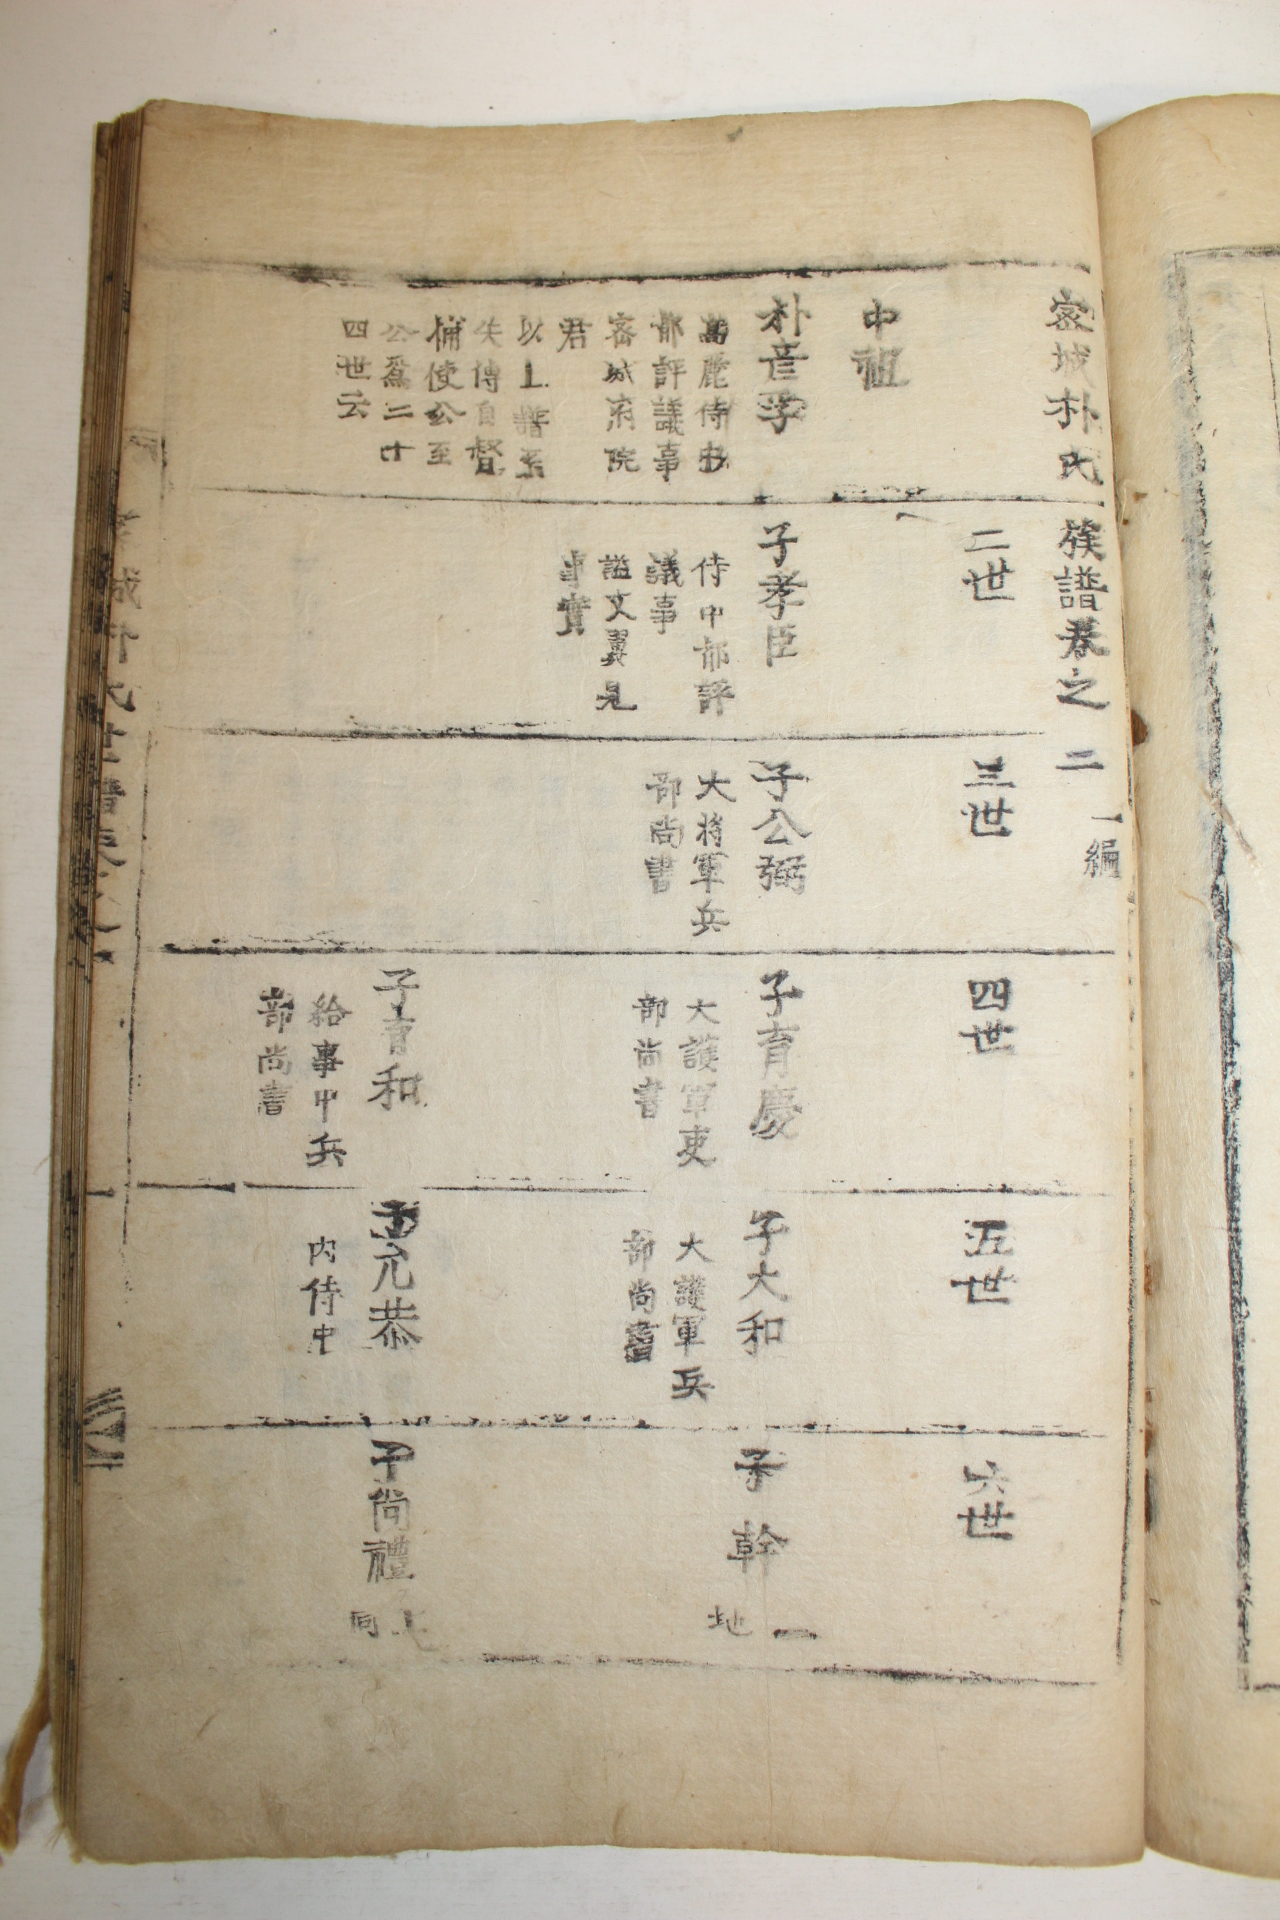 密城朴氏族譜卷之二 一編
中祖
二世
三世
四世
五世
六世
朴彦孚
高麗侍中
都評議事
密城府院
君
以上譜系
失傳自督
捕使公至
公爲二十
四世云
子孝臣
侍中都評
議事
諡文翼見
事實
子公弼
大將軍兵
部尚書
子育慶
大護軍吏
部尚書
子育和
給事中兵
部尚書
子大和
大護軍兵
部尚書
子允恭
內侍中
子幹
一
地
子尚禮
上
同
城朴氏世譜卷之